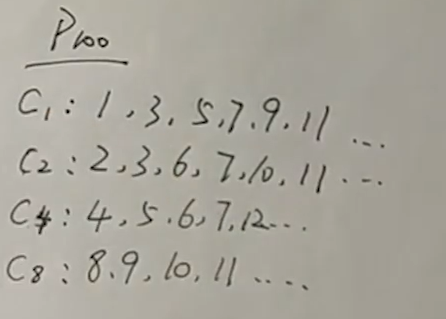 P100
C1: 1, 3, 5, 7, 9, 11 ...
C2: 2, 3, 6, 7, 10, 11 ...
C4: 4, 5, 6, 7, 12...
C8: 8, 9, 10, 11 ....